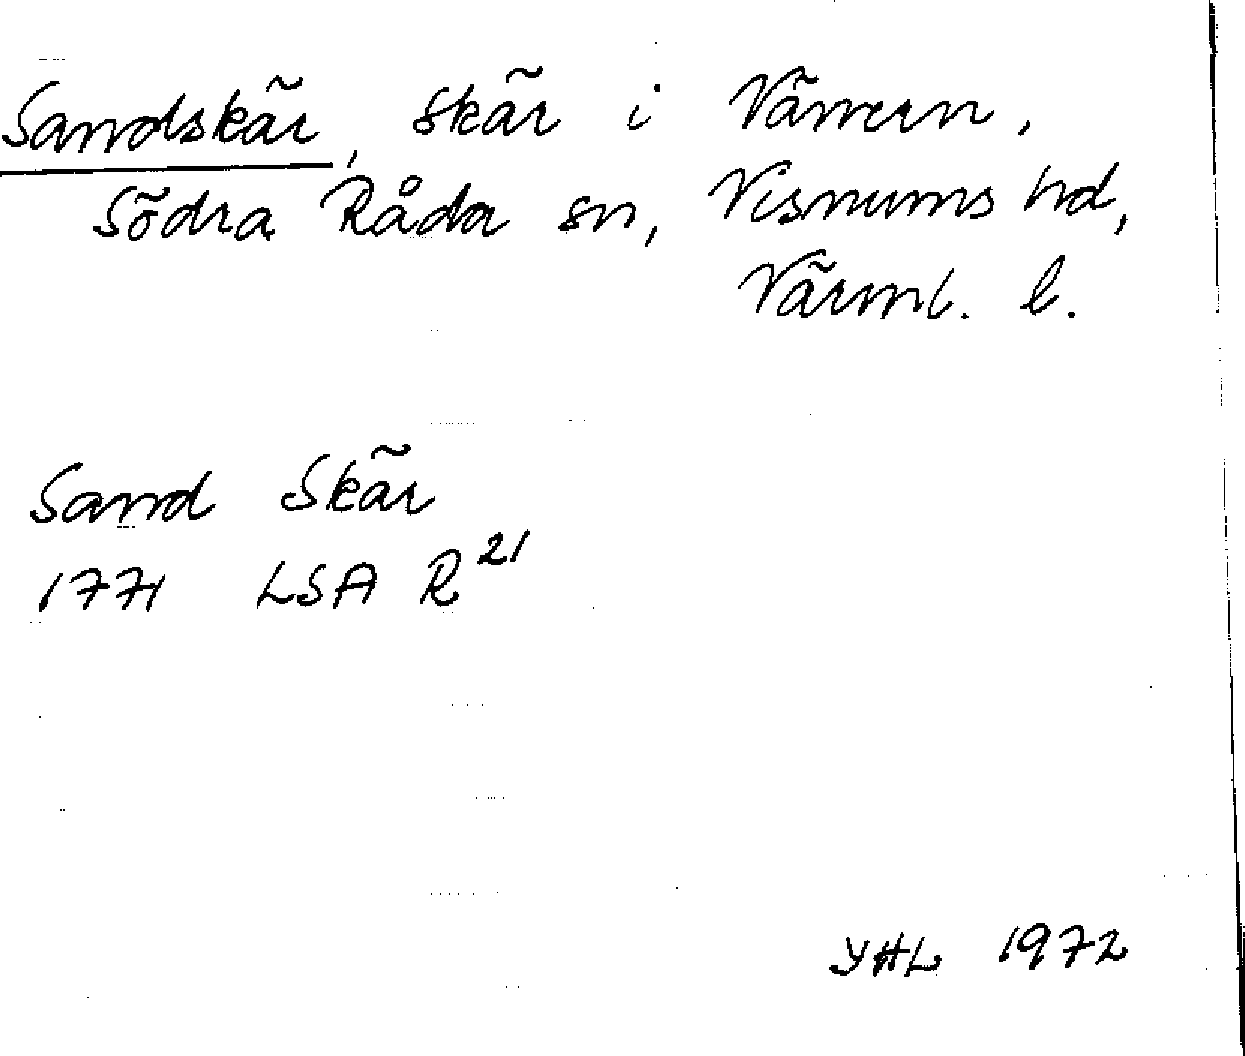 Sandskär, skär i Vänern,
Södra Råda sn, Visnums hd,
Värml. l.
Sand Skär
1771 LSA R 21
YHL 1972